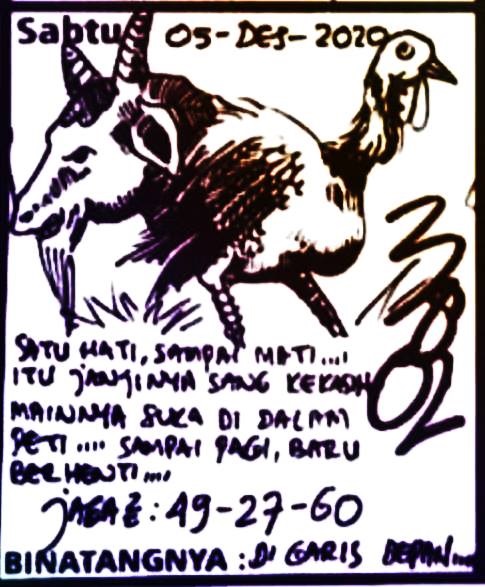 Sabtu 05-DES-2020
SATU HATI, SAMPAI MATI....
ITU JANJINYA SANG KEKASIH
MAINNYA SUKA DI DALAM
PETI .... SAMPAI PAGI, BARU
BERHENTI....
JAGA2: 49-27-60
BINATANGNYA : DI GARIS DEPAN...